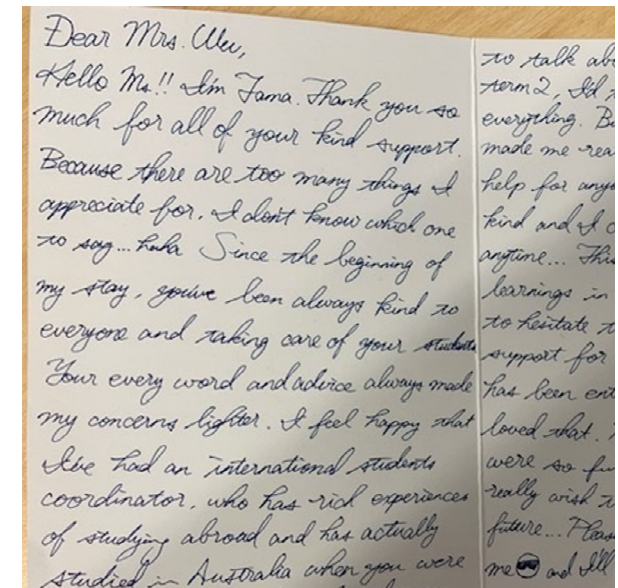 Dear Mrs. Wu,
Hello Ms.!! I'm Tama. Thank you so
much for all of your kind support.
Because there are too many things I
appreciate for, I don't know which one
to say... haha Since the beginning of
my stay, you've been always kind to
everyone and taking care of your students
Your every word and advice always made
my concerns lighter. I feel happy that
I've had an international students
coordinator, who has rich experiences
of studying abroad and has actually
studied in Australia when you were
to talk abo
term 2, I'd
everything. B
made me rea
help for anyo
kind and I c
anytime... This
learnings in
to hesitate t
support for
has been ent
loved that.
were so fu
really wish t
future... Pleas
me 😎 and I'll